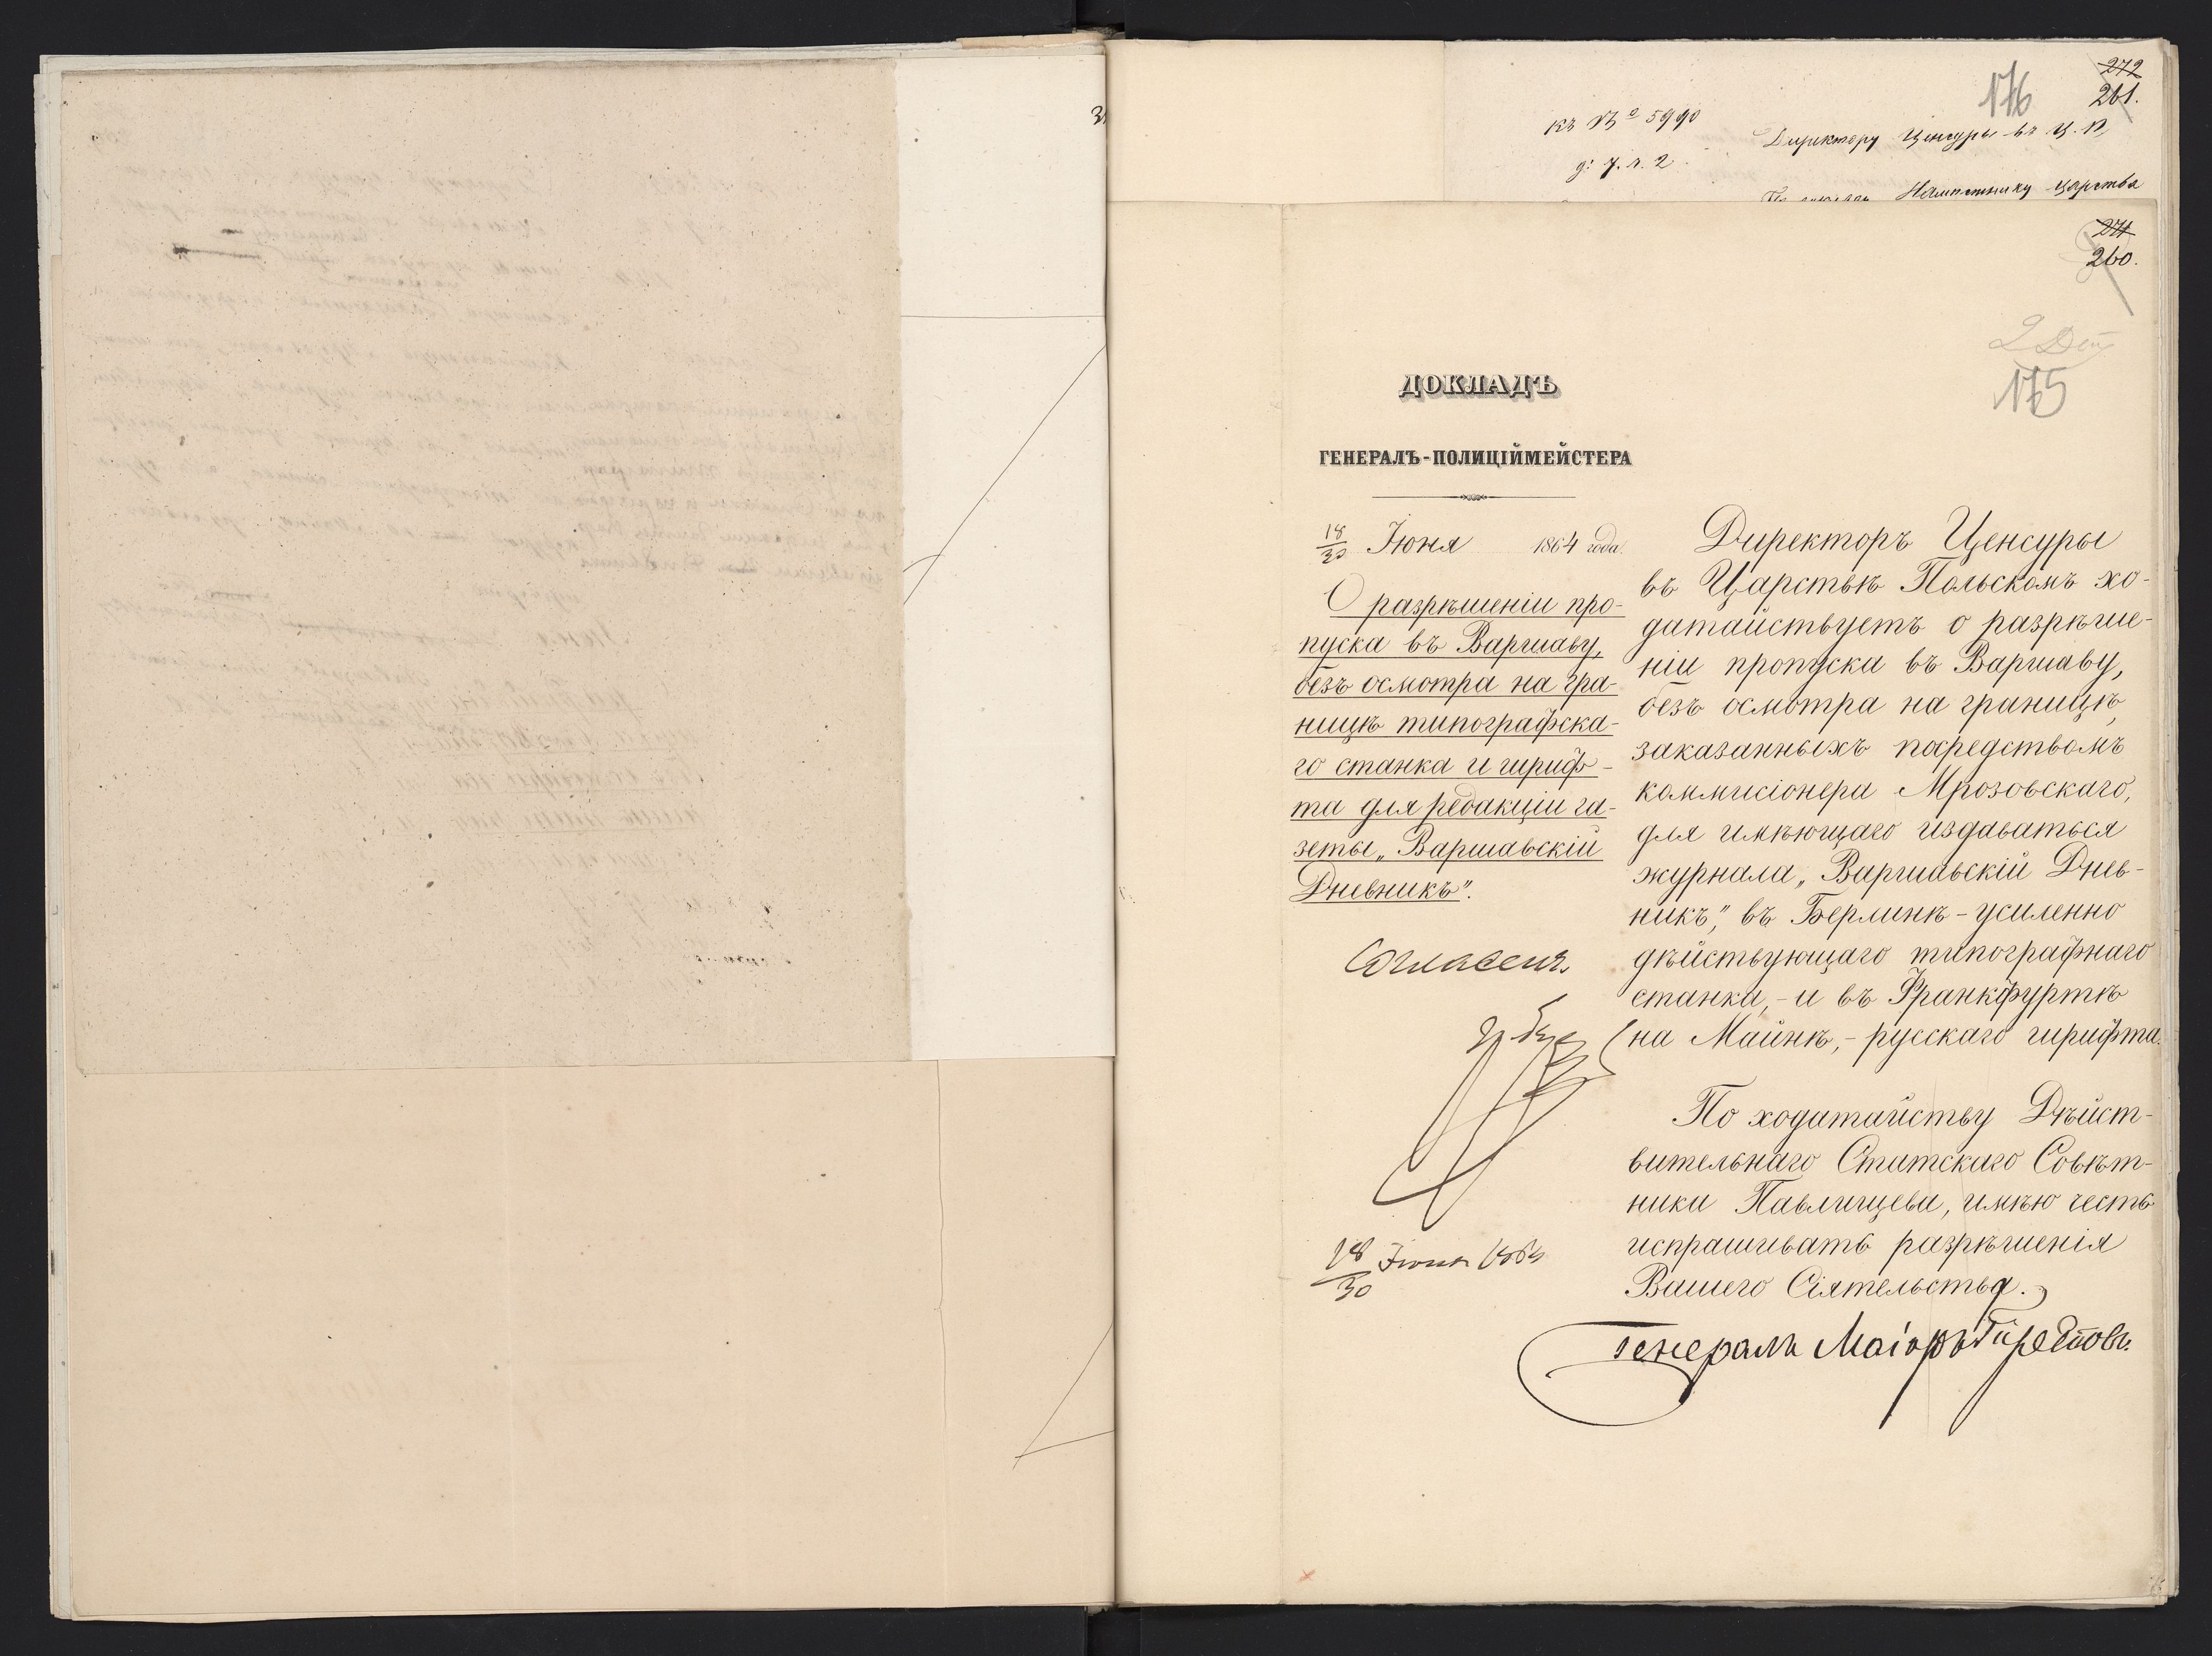 176
272
261.
къ № 5990
д: 7. л. 2
Директору Ценсуры въ Ц. П.
Намѣстнику Царства
271
260.
175
ДОКЛАДЪ
ГЕНЕРАЛЪ-ПОЛИЦІЙМЕЙСТЕРА
18/30 Іюня 1864 года.
О разрѣшеніи про-
пуска въ Варшаву,
безъ осмотра на гра-
ницѣ типографска-
го станка и шриф-
та для редакціи га-
зеты „Варшавскій
Дневникъ".
Согласенъ.
18/30 Іюня 1864
Директоръ Ценсуры
въ Царствѣ Польскомъ хо-
датайствуетъ о разрѣше-
ніи пропуска въ Варшаву,
безъ осмотра на границѣ,
заказанныхъ посредствомъ
коммисіонера Мрозовскаго,
для имѣющаго издаваться
журнала „Варшавскій Днев-
никъ", въ Берлинѣ - усиленно
дѣйствующаго типографнаго
станка, - и въ Франкфуртѣ
на Майнѣ, - русскаго шрифта.
По ходатайству Дѣйст-
вительнаго Статскаго Совѣт-
ника Павлищева, имѣю честь
испрашивать разрѣшенія
Вашего Сіятельства.
Генералъ Маіоръ Треповъ.